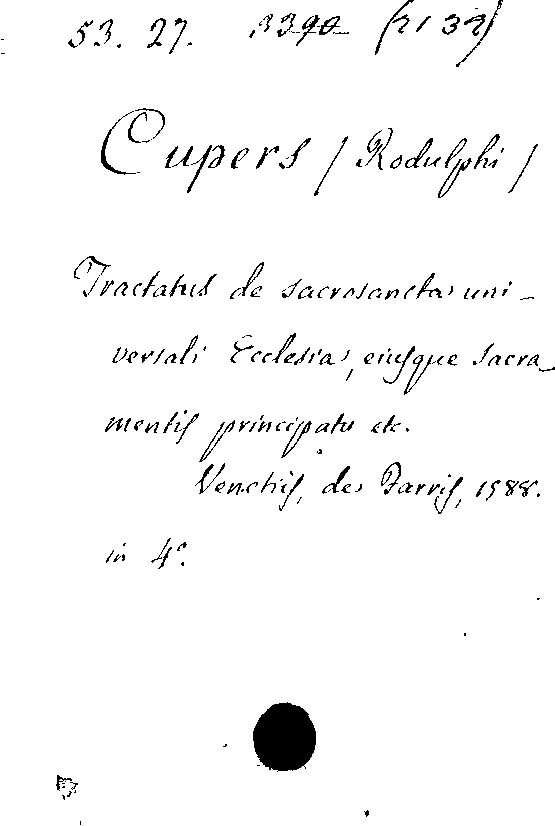 53. 27. 3390 (2132)
Cupers / Rodulphi /
Tractatus de sacrosancta uni-
versali Ecclesia, eiusque sacra
mentis principatu etc.
Venetiis, de Farris, 1588.
in 4º.